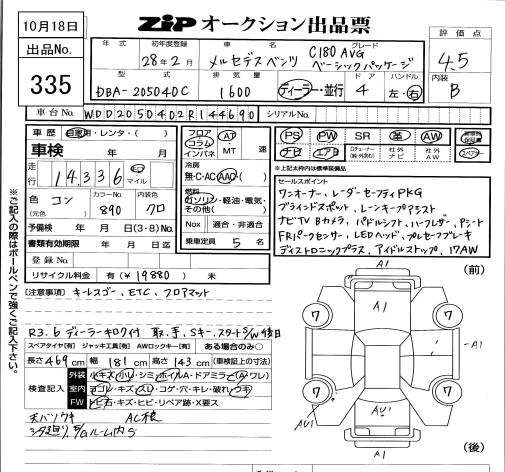 10月18日
出品No.
335
ZIP オークション出品票
評価点
4.5
内装
B
年式 初年度登録 車名 グレード
28年2月 メルセデスベンツ C180 AVG ベーシックパッケージ
型式 排気量 ドア ハンドル
DBA-205040C 1600 ディーラー・並行 4 左・右
車台No. WDD2050402R144690 シリアルNo.
車歴 自家用・レンタ・( )
車検 年 月
走行 14,336 km マイル
色 コン カラーNo. 890 内装色 クロ
(元色)
予備検 年 月 日(3・8)No.
書類有効期限 年 月 日迄
登録No.
リサイクル料金 有(¥19880) 未
フロア コラム インパネ AT MT 速
冷房
無・C・AC・AAC( )
燃料
ガソリン・軽油・電気・その他( )
Nox 適合・非適合
乗車定員 5 名
PS PW SR 革 AW
ナビ エアB 社外ナビ 社外AW
※上記太枠は標準装備品
セールスポイント
ワンオーナー、レーダーセーフティPKG
ブラインドスポット、レーンキープアシスト
ナビTV Bカメラ、パドルシフト、ハーフレザー、Pシート
FRパークセンサー、LEDヘッド、プレセーフブレーキ
ディストロニックプラス、アイドルストップ、17AW
[注意事項] キーレスゴー、ETC、フロアマット
R3.6 ディーラーキロク付 取、手、Sキー、スタートS/W後日
スペアタイヤ[有] ジャッキ工具[有] AWロックキー[有] ある場合のみ○
長さ469cm 幅181cm 高さ143cm (車検証上の寸法)
検査記入 外装 小キズ・小U・シミ・ホイルA・ドアミラー(A・ワレ)
室内 ヨゴレ・キズ・スレ・コゲ・穴・キレ・破れ・ウキ
FW トビ石・キズ・ヒビ・リペア跡・X要ス
天バリウキ AC後
Gルーム内S
※ご記入の際はボールペンで強くご記入下さい。
(前)
A1
A1
7
7
7
7
A1
AU1
AU1
A1
(後)